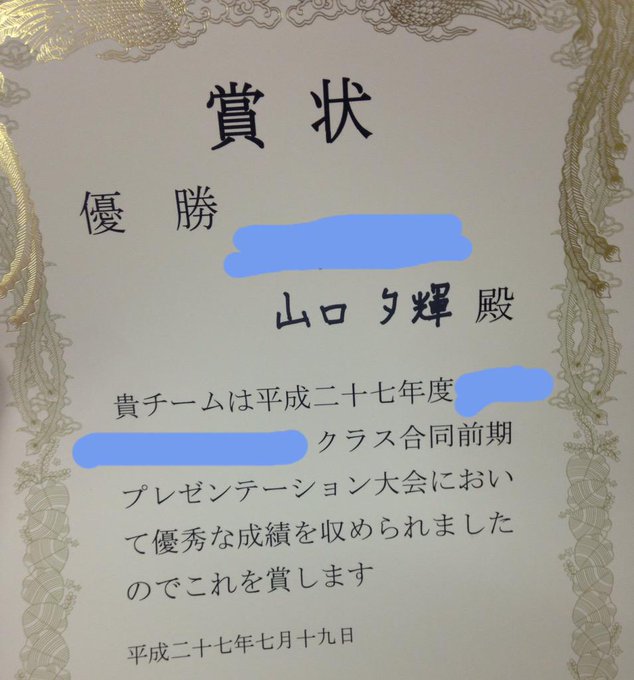 賞状
優勝
山口夕輝 殿
貴チームは平成二十七年度
クラス合同前期
プレゼンテーション大会におい
て優秀な成績を収められました
のでこれを賞します
平成二十七年七月十九日